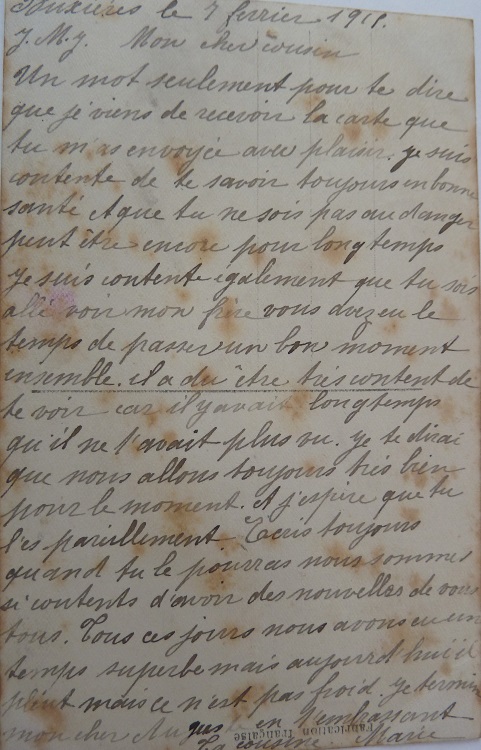 le 7 fevrier 1915.
J. M. J. Mon cher cousin
Un mot seulement pour te dire
que je viens de recevoir la carte que
tu m'as envoyée avec plaisir. je suis
contente de te savoir toujours en bonne
santé et que tu ne sois pas au danger
peut être encore pour longtemps
je suis contente egalement que tu sois
allé voir mon frère vous avez eu le
temps de passer un bon moment
ensemble. il a du être très content de
te voir car il y avait longtemps
qu'il ne t'avait plus vu. je te dirai
que nous allons toujours très bien
pour le moment. et j'espère que tu
l'es pareillement Ecris toujours
quand tu le pourras nous sommes
si contents d'avoir des nouvelles de vous
tous. Tous ces jours nous avons eu un
temps superbe mais aujourd'hui il
pleut mais ce n'est pas froid. je termine
mon cher en t'embrassant
Ta cousine Marie
Fabrication Française